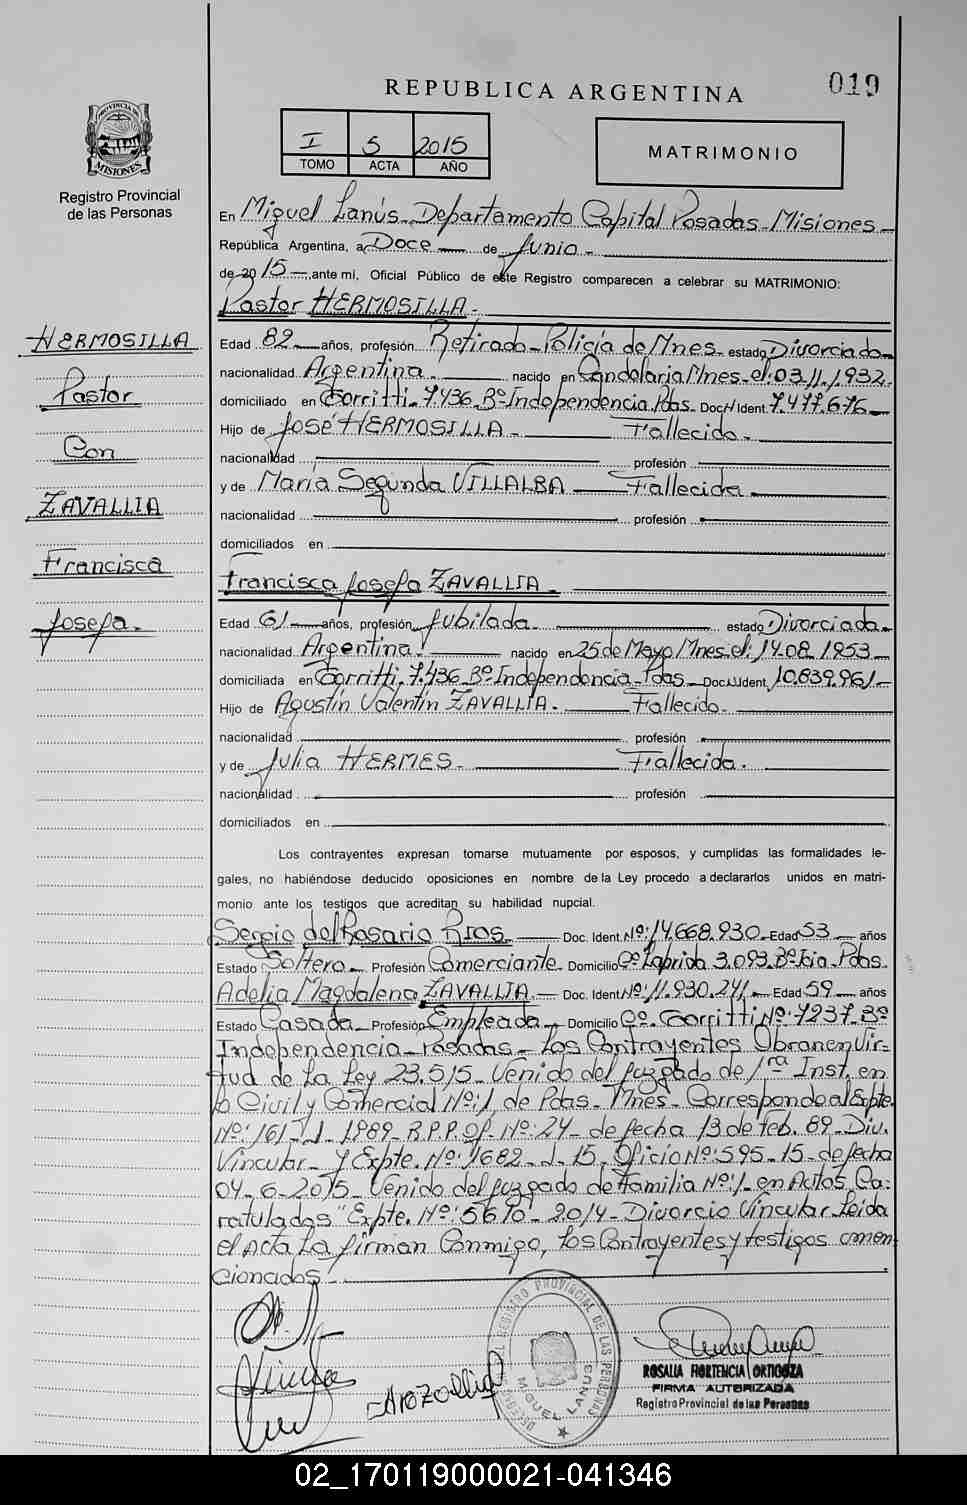 019
REPUBLICA ARGENTINA
PROVINCIA DE
MISIONES
I 5 2015
TOMO ACTA AÑO
MATRIMONIO
Registro Provincial
de las Personas
En Miguel Lanús - Departamento Capital Posadas - Misiones -
República Argentina, a Doce - de Junio -
de 2015 -, ante mí, Oficial Público de este Registro comparecen a celebrar su MATRIMONIO:
Pastor HERMOSILLA. -
HERMOSILLA
Pastor
Con
ZAVALLIA
Francisca
Josefa. -
Edad 82 - años, profesión Retirado - Policía de Mnes - estado Divorciado -
nacionalidad Argentina. - nacido en Candelaria Mnes - el: 03.11.1932.
domiciliado en Gorritti. 7.436 - Bº Independencia. Pdas. Doc. Ident. 7.477.676 -
Hijo de José HERMOSILLA. - Fallecido. -
nacionalidad - profesión -
y de María Segunda VILLALBA - Fallecida -
nacionalidad - profesión -
domiciliados en -
Francisca Josefa ZAVALLIA. -
Edad 61 - años, profesión Jubilada. - estado Divorciada. -
nacionalidad Argentina. - nacido en 25 de Mayo Mnes. el: 14.08.1953 -
domiciliada en Gorritti. 7.436 - Bº Independencia - Pdas - Doc. Ident. 10.839.961 -
Hijo de Agustín Valentín ZAVALLIA. - Fallecido. -
nacionalidad - profesión -
y de Julia HERMES. - Fallecida. -
nacionalidad - profesión -
domiciliados en -
Los contrayentes expresan tomarse mutuamente por esposos, y cumplidas las formalidades le-
gales, no habiéndose deducido oposiciones en nombre de la Ley procedo a declararlos unidos en matri-
monio ante los testigos que acreditan su habilidad nupcial.
Sergio del Rosario RIOS - Doc. Ident. Nº: 14.668.930 - Edad 53 - años
Estado Soltero - Profesión Comerciante - Domicilio Cº Laprida 3.093. Bº Pdas.
Adelia Magdalena ZAVALLIA. - Doc. Ident. Nº: 11.930.241 - Edad 59 - años
Estado Casada - Profesión Empleada - Domicilio Cº. Gorritti Nº: 7237 - Bº
Independencia - Posadas - Los Contrayentes Obran en Vir-
tud de La Ley 23.515 - Venido del Juzgado de 1ra Inst. en
lo Civil y Comercial Nº: 1, de Pdas - Mnes - Corresponde al Expte.
Nº: 161 - J - 1989 - R.P.P. Of. Nº: 24 - de fecha 13 de Feb. 89 - Div.
Vincular - Y Expte. Nº: 1682 - J - 15, Oficio Nº: 595 - 15 - de fecha
04 - 6 - 2015 - Venido del Juzgado de Familia Nº: 1 - en Autos Ca-
ratulados "Expte. Nº: 5670 - 2014 - Divorcio Vincular Leida
el Acta La firman Conmigo, Los Contrayentes y testigos
cionados -
REGISTRO PROVINCIAL DE LAS PERSONAS
MIGUEL LANUS
ROSALIA HORTENCIA ORTIGOZA
FIRMA AUTORIZADA
Registro Provincial de las Personas
02_170119000021-041346